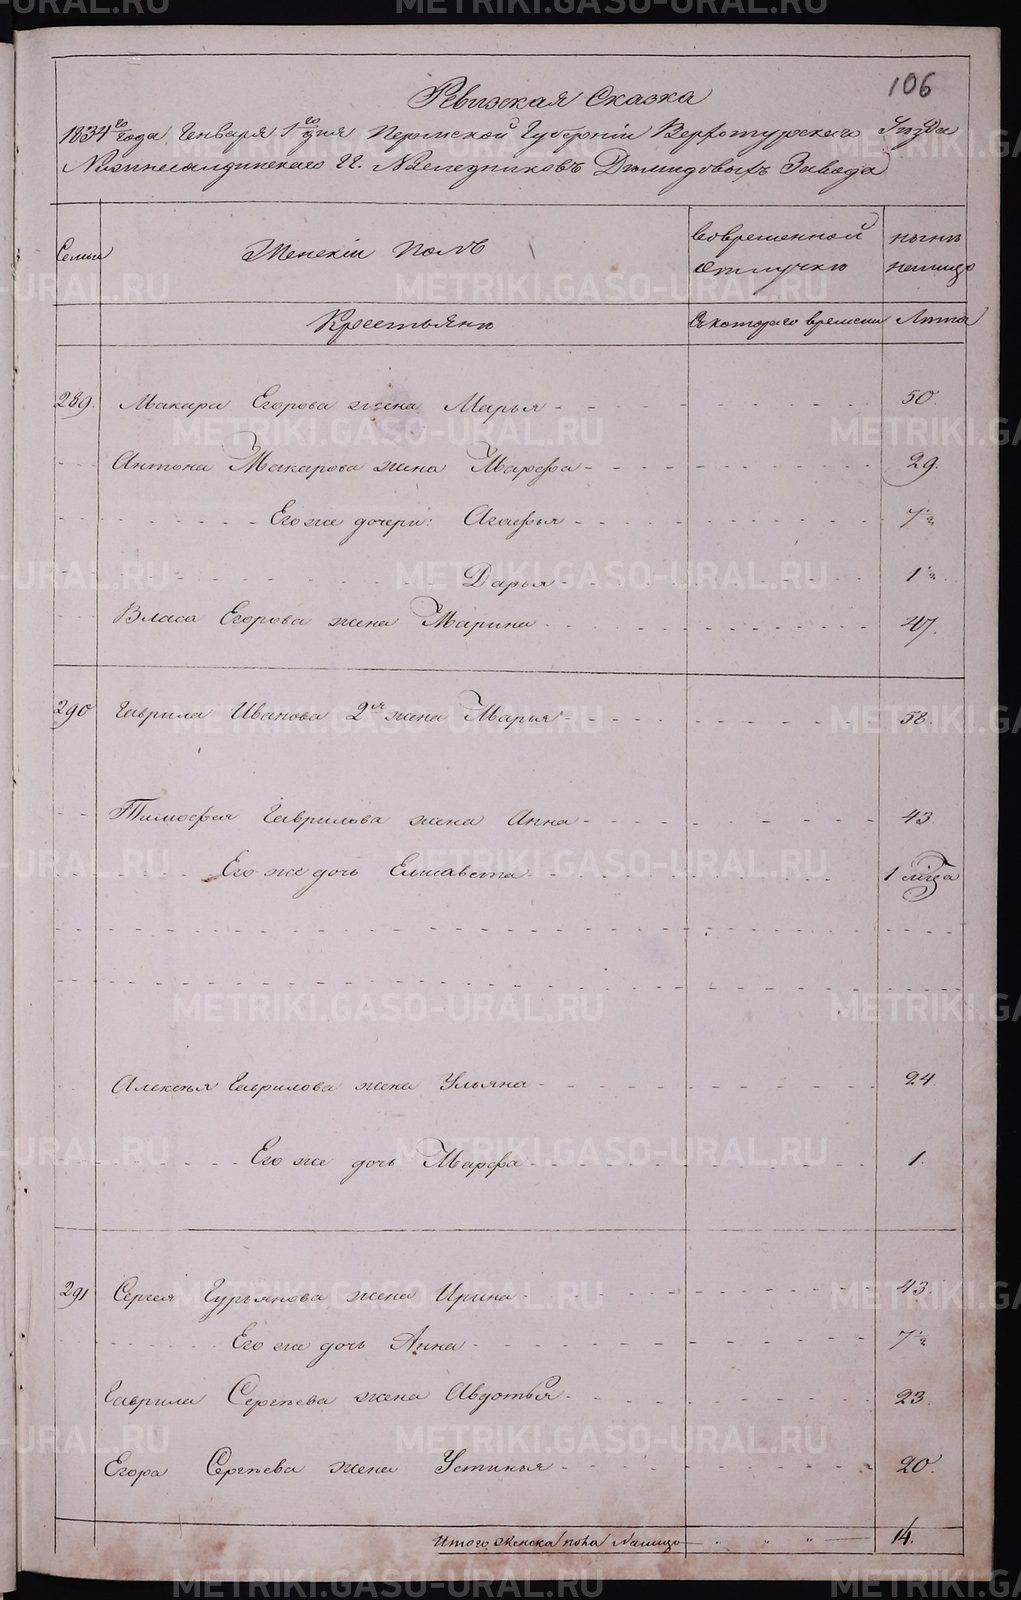 106
Ревизская Сказка
1834го года Генваря 1го дня Пермской Губерніи Верхотурскаго Уѣзда
Нижнесалдинскаго Гг. Наслѣдниковъ Демидовыхъ Завода
Семьи Женскій полъ Вовременной отлучкѣ нынѣ налицо
Крестьянъ Съкотораго времени Лѣта
289. Макара Егорова жена Марья 50.
Антона Макарова жена Марфа 29.
Его же дочери: Агафья 7½
Дарья 1½
Власа Егорова жена Марина 47.
290 Гаврила Иванова 2я жена Марья 58.
Тимофея Гаврилова жена Анна 43.
Его же дочь Елисавета 1 мѣсца
Алексѣя Гаврилова жена Ульяна 24
Его же дочь Марфа 1.
291 Сергея Гурьянова жена Ирина 43.
Его же дочь Анна 7½
Гаврила Сергѣева жена Авдотья 23.
Егора Сергѣева жена Устинья 20.
Итого женска пола налицо 14.
METRIKI.GASO-URAL.RU